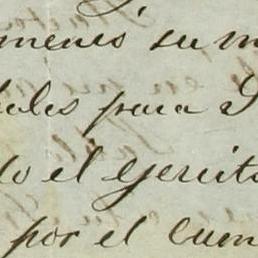 menes su m
para
do el Ejercito
por el cum